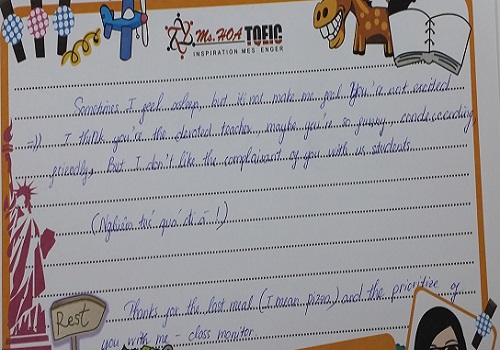 Ms. HOA TOEIC
INSPIRATION MESSENGER
Sometimes I feel asleep, but it's not make me feel You're not excited
=)) I think you're the devoted teacher, maybe you're so funny, condescending
friendly, But I don't like the complaisant of you with us students
(Nghiêm túc quá đi à !)
Thanks for the last meal (I mean pizza) and the prioritize of
you with me - class monitor.
Rest